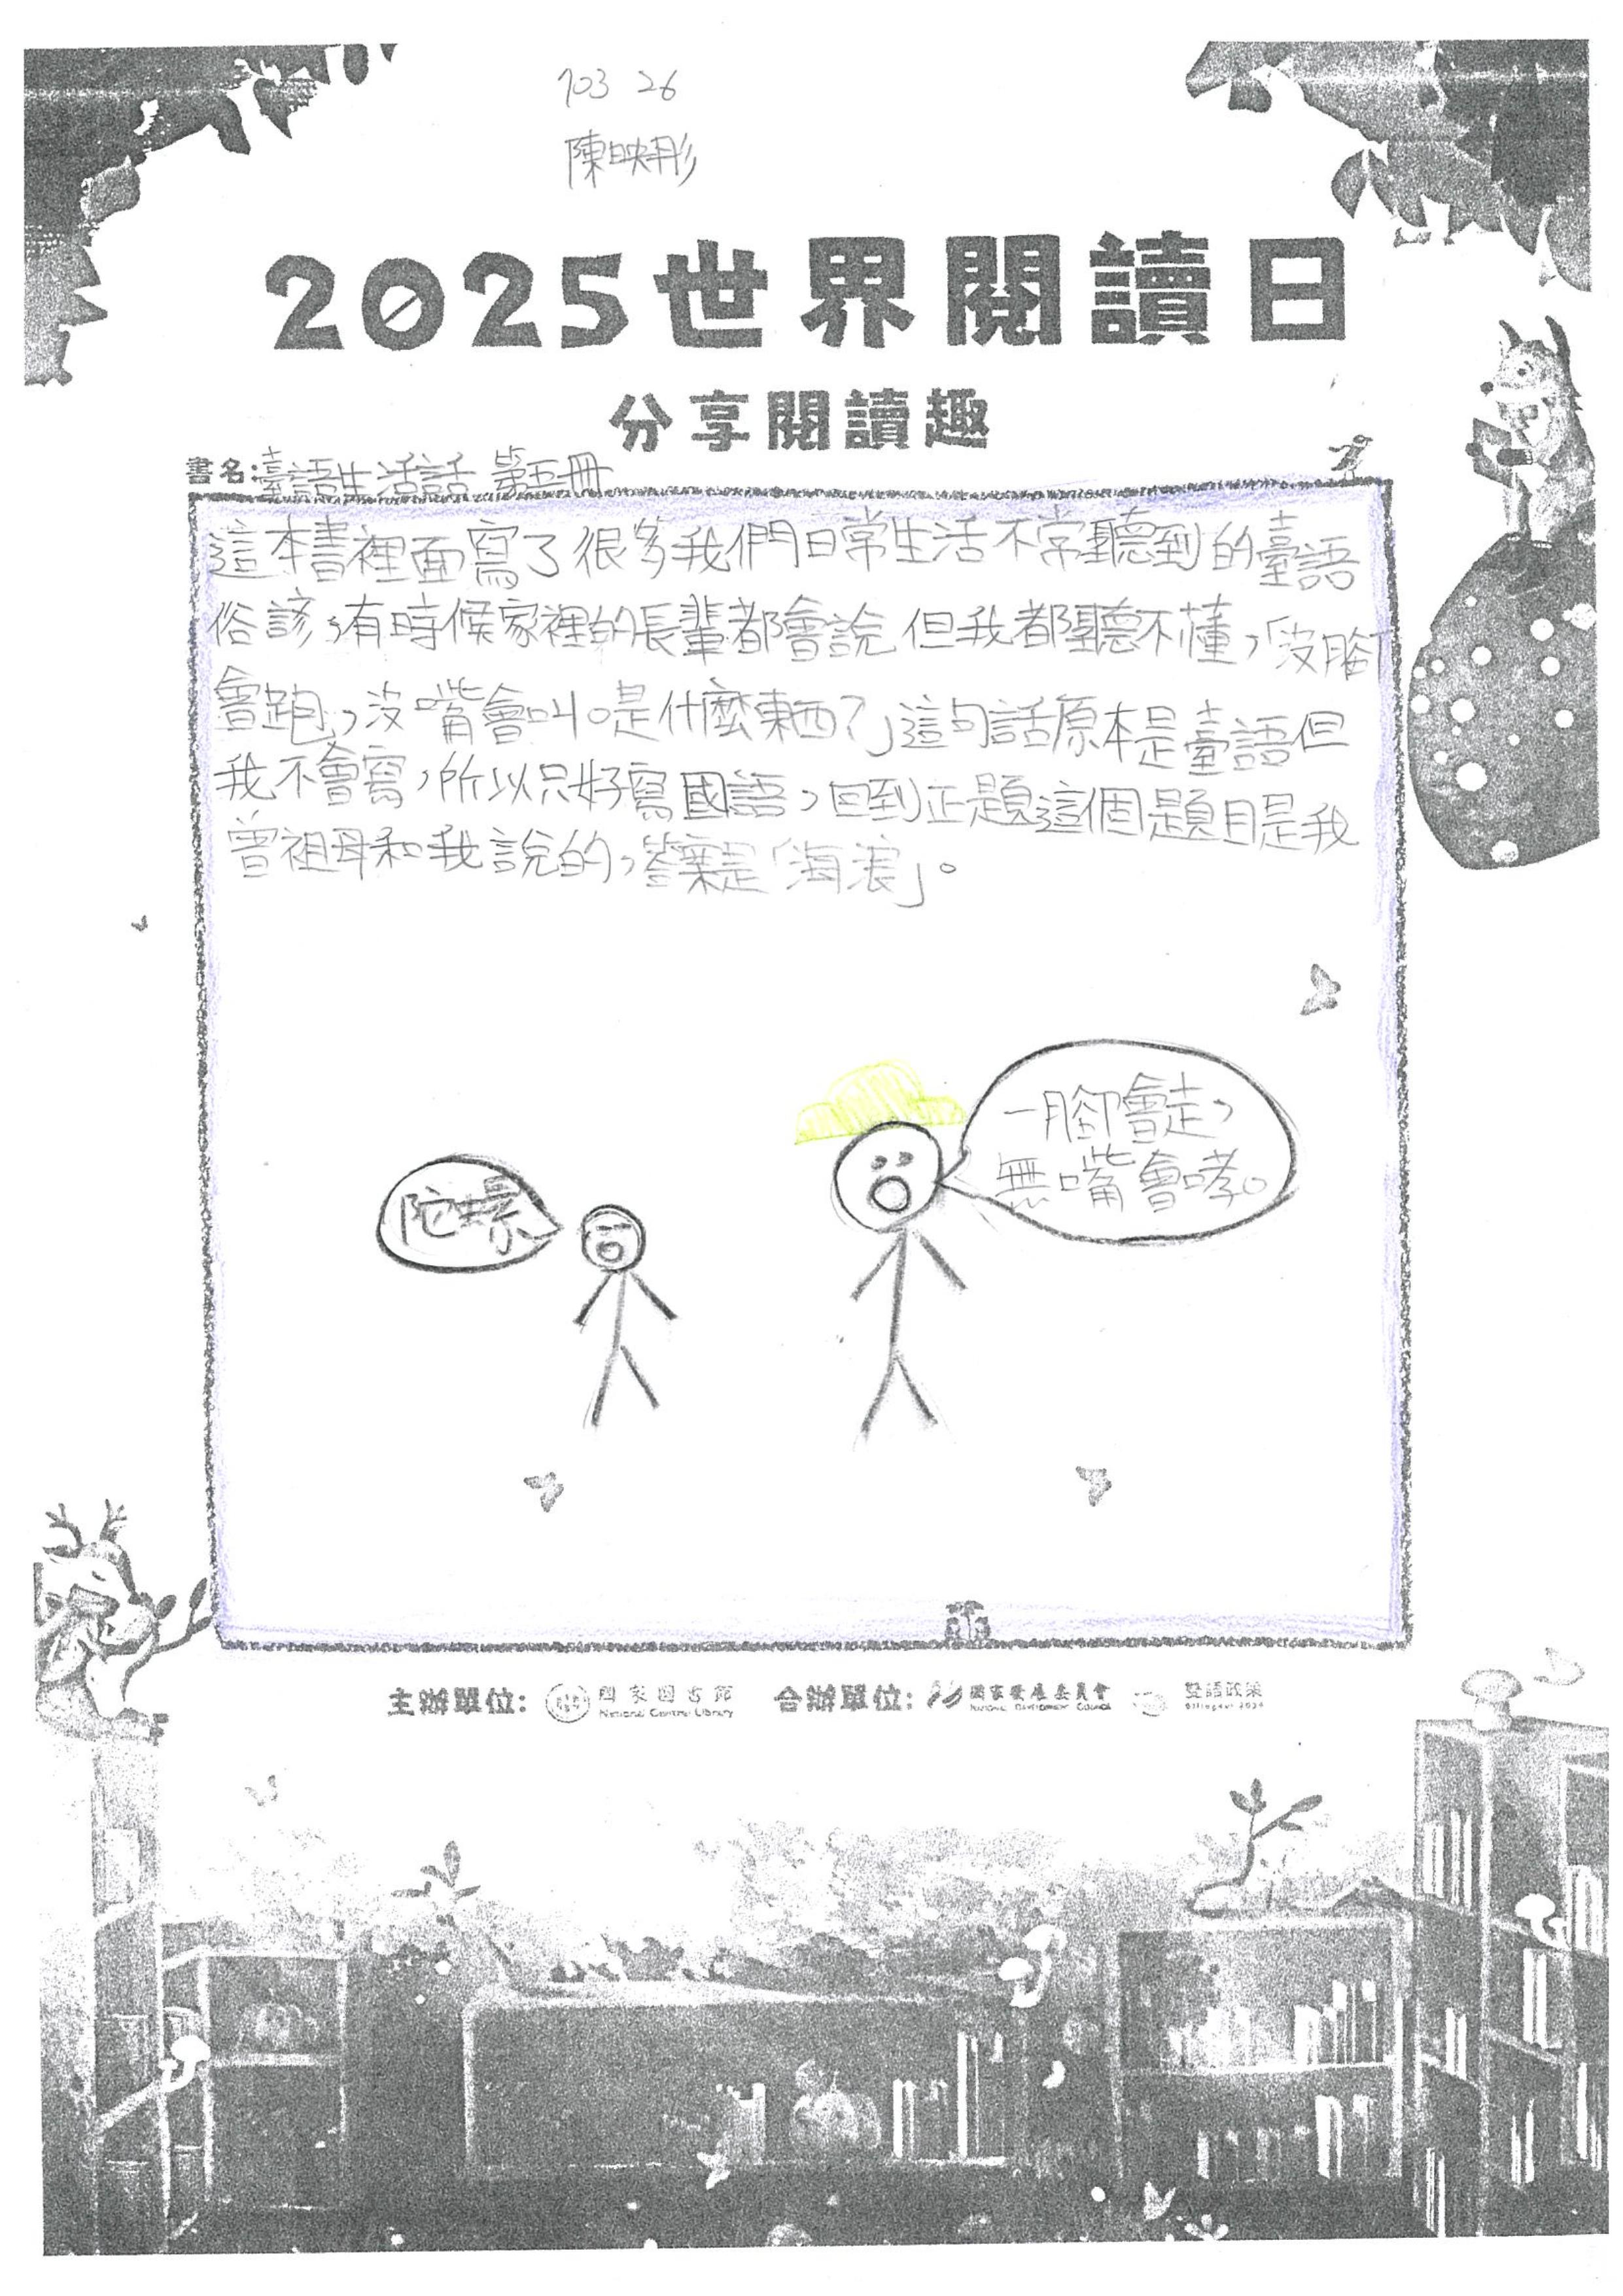 703 26
陳映彤
2025世界閱讀日
分享閱讀趣
書名:臺語生活話 第五冊
這本書裡面寫了很多我們日常生活不常聽到的臺語
俗諺,有時候家裡的長輩都會說但我都聽不懂,「沒腳
會跑,沒嘴會叫。是什麼東西?」這句話原本是臺語但
我不會寫,所以只好寫國語,回到正題這個題目是我
曾祖母和我說的,答案是「海浪」。
一腳會走,
無嘴會哮。
陀螺
主辦單位: 國家圖書館 National Central Library 合辦單位: 國家發展委員會 National Development Council 雙語政策 Bilingual 2030